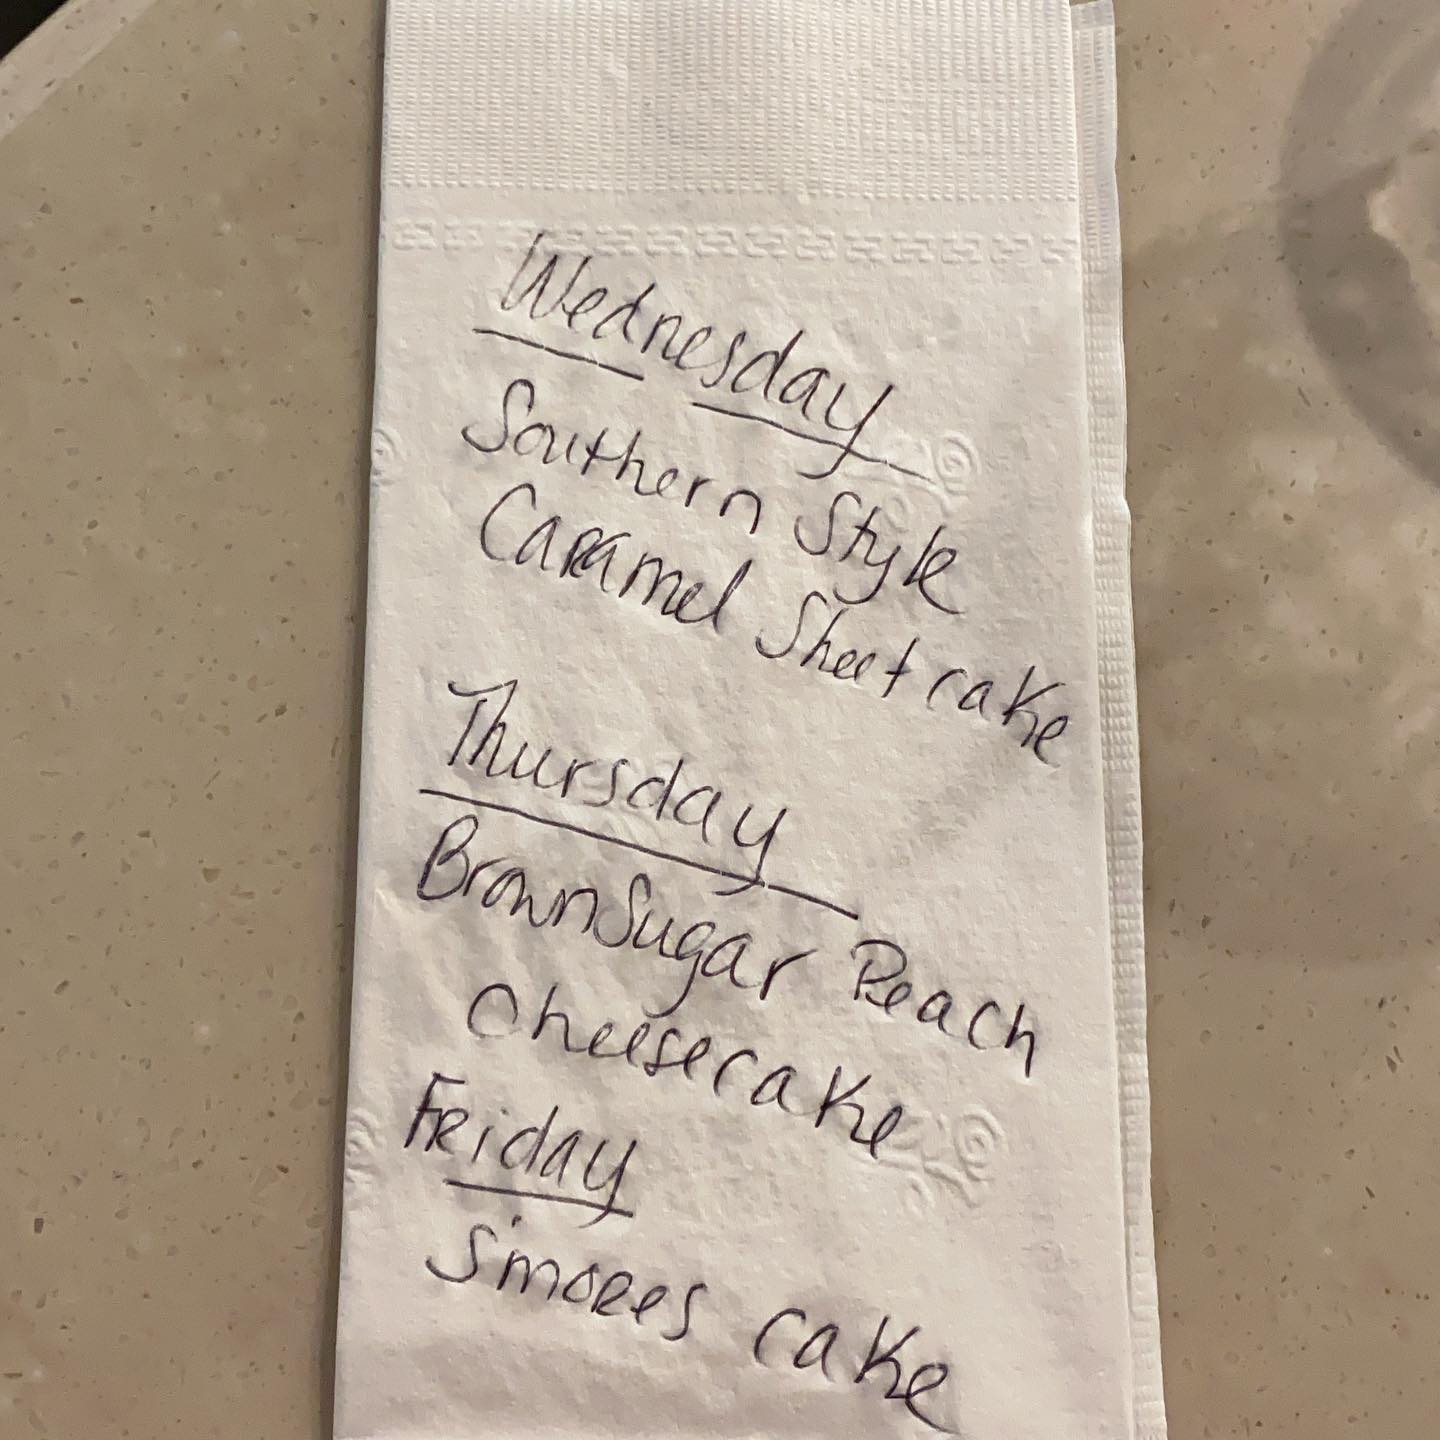 Wednesday
Southern Style
Caramel Sheetcake
Thursday
Brown Sugar Peach
Cheesecake
Friday
S'mores cake